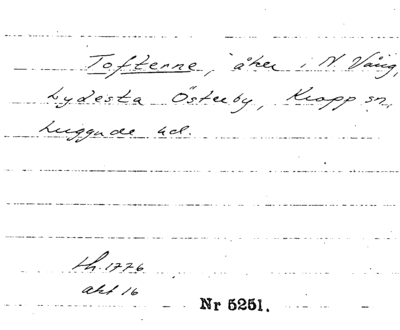 Tofterne, åker i N Vång,
Lydesta Österby, Kropp sn,
Luggude hd.
th. 1776
akt 16
Nr 5251.